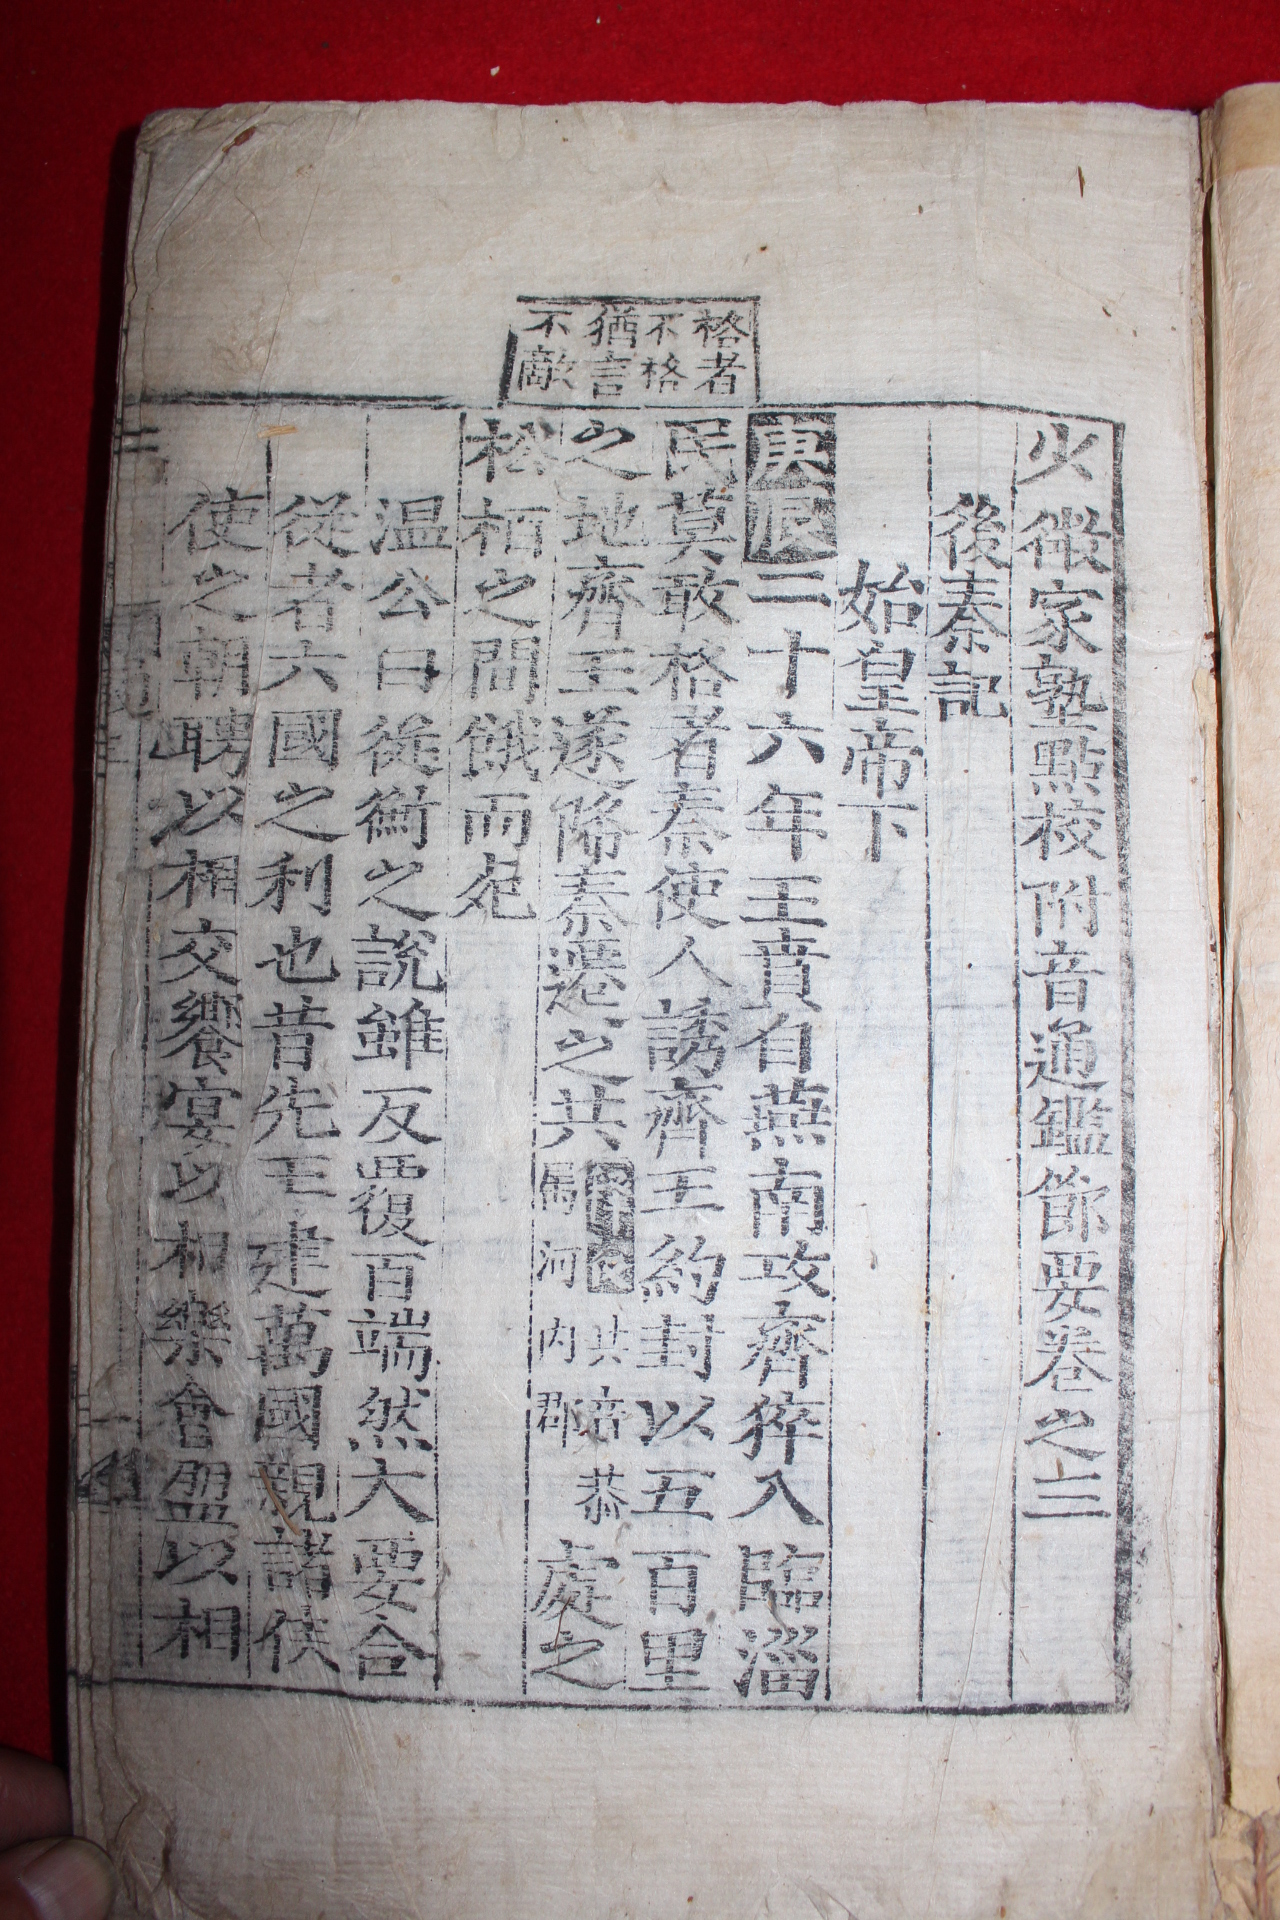 格者
不格
猶言
不敵
少微家塾點校附音通鑑節要卷之三
後秦記
始皇帝下
庚辰二十六年王賁自燕南攻齊猝入臨淄
民莫敢格者秦使人誘齊王約封以五百里
之地齊王遂降秦遷之共共音恭屬河內郡處之
松栢之間餓而死
温公曰從衡之說雖反覆百端然大要合
從者六國之利也昔先王建萬國親諸侯
使之朝聘以相交饗宴以相樂會盟以相